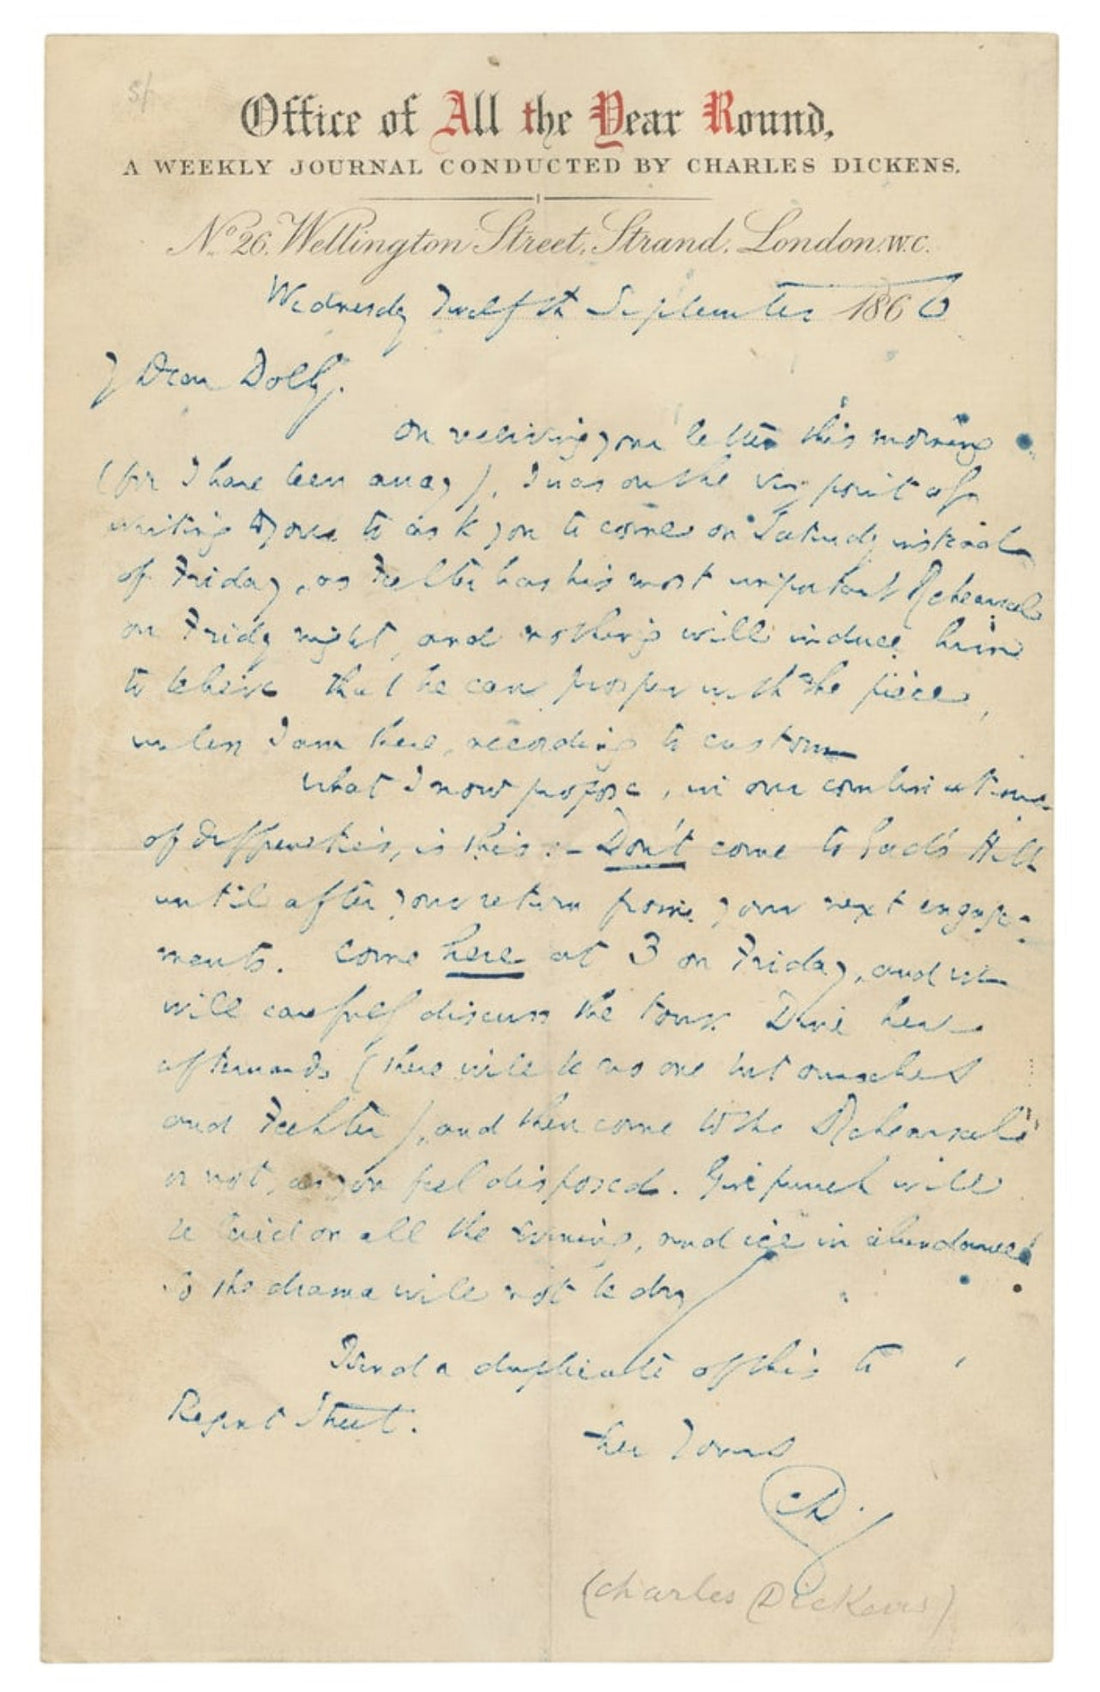 Office of All the Year Round,
A WEEKLY JOURNAL CONDUCTED BY CHARLES DICKENS.
No. 26, Wellington Street, Strand, London. W.C.
Wednesday Twelfth September 1866
My Dear Dolby.
On receiving your letter this morning
(for I have been away), I was on the very point of
writing to you to ask you to come on Saturday instead
of Friday, as Fechter has his most important Rehearsal
on Friday night, and nothing will induce him
to believe that he can prosper with the piece,
unless I am there, according to custom
What I now propose, in our combination
of difficulties, is this:- Don't come to Gad's Hill
until after your return from your next engage-
ments. Come here at 3 on Friday, and we
will carefully discuss the tour. Dine here
afterwards (there will be no one but ourselves
and Fechter), and then come to the Rehearsal
or not, as you feel disposed. Gin punch will
be laid on all the evening, and ice in abundance
So the drama will not be dry
I send a duplicate of this to
Regent Street.
Ever Yours
CD.
(Charles Dickens)